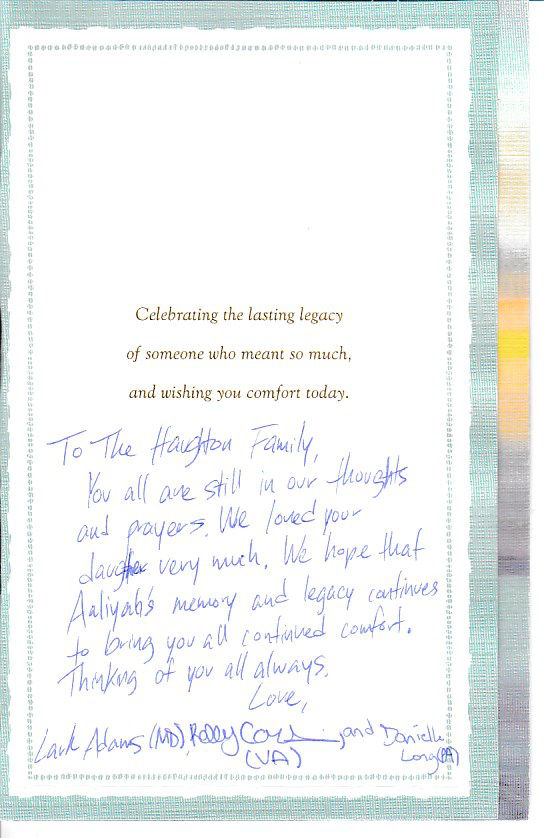 Celebrating the lasting legacy
of someone who meant so much,
and wishing you comfort today.
To The Haughton Family,
You all are still in our thoughts
and prayers. We loved your
daughter very much. We hope that
Aaliyah's memory and legacy continues
to bring you all continued comfort.
Thinking of you all always.
Love,
Lark Adams (MD), Kelly and Danielle
(VA) Long (PA)